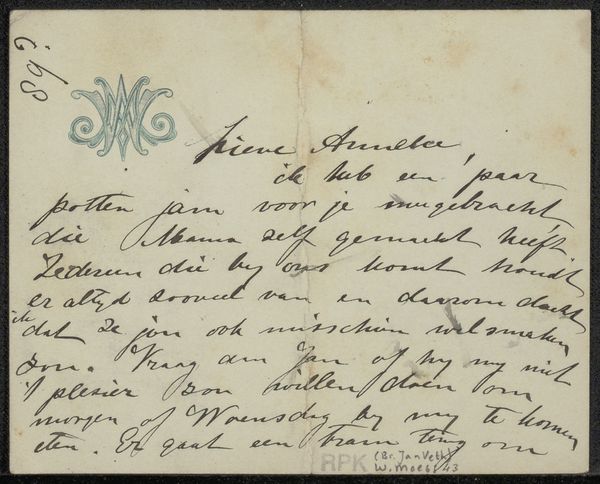 89?
Lieve Anneke,
ik heb een paar
potten jam voor je meegebracht
die Mama zelf gemaakt heeft.
Iedereen die by ons komt houdt
er altyd zooveel van en daarom dacht
ik
dat ze jou ook misschien wel smaken
zou. Vraag dan Jan of hy my niet
't plesier zou willen doen om
morgen of Woensdag by my te komen
eten. Er gaat een tram terug om
RPK (Br. Jan Veth)
W. Moes 43